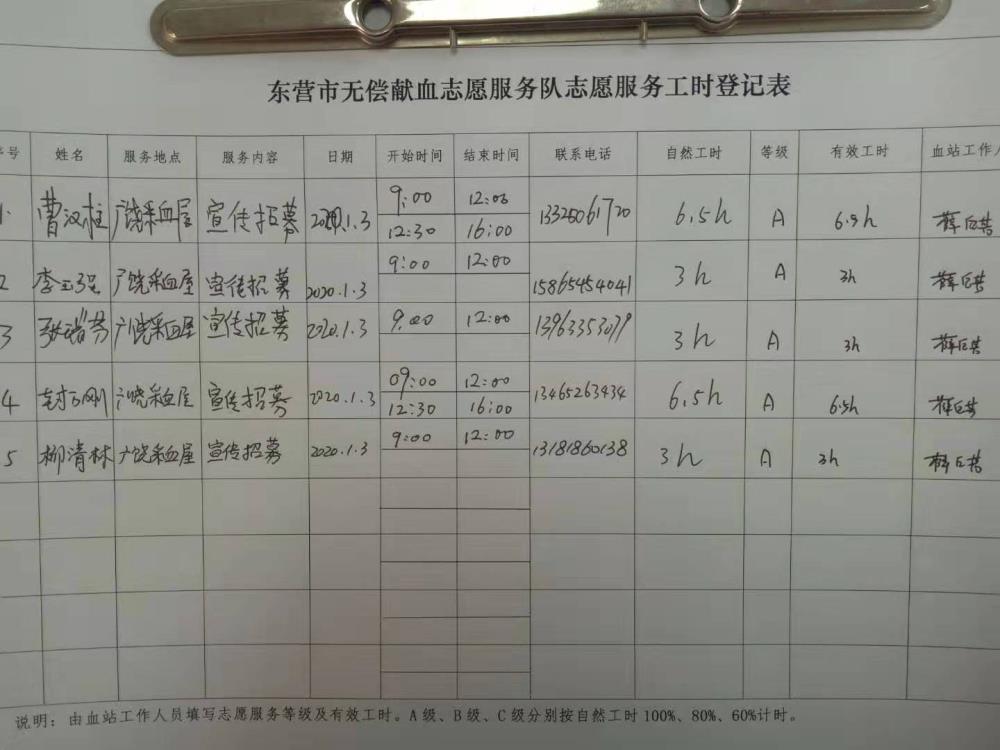 东营市无偿献血志愿服务队志愿服务工时登记表
号 姓名 服务地点 服务内容 日期 开始时间 结束时间 联系电话 自然工时 等级 有效工时 血站工作人
1. 曹汉柱 广饶采血屋 宣传招募 2020.1.3 9:00 12:00 13325061720 6.5h A 6.5h
12:30 16:00
2 李玉强 广饶采血屋 宣传招募 2020.1.3 9:00 12:00 15865454041 3h A 3h
3 张瑞芳 广饶采血屋 宣传招募 2020.1.3 9:00 12:00 13963353079 3h A 3h
4 广饶采血屋 宣传招募 2020.1.3 09:00 12:00 13465263434 6.5h A 6.5h
12:30 16:00
5 柳清林 广饶采血屋 宣传招募 2020.1.3 9:00 12:00 13181860138 3h A 3h
说明：由血站工作人员填写志愿服务等级及有效工时。A 级、B 级、C 级分别按自然工时 100%、80%、60%计时。